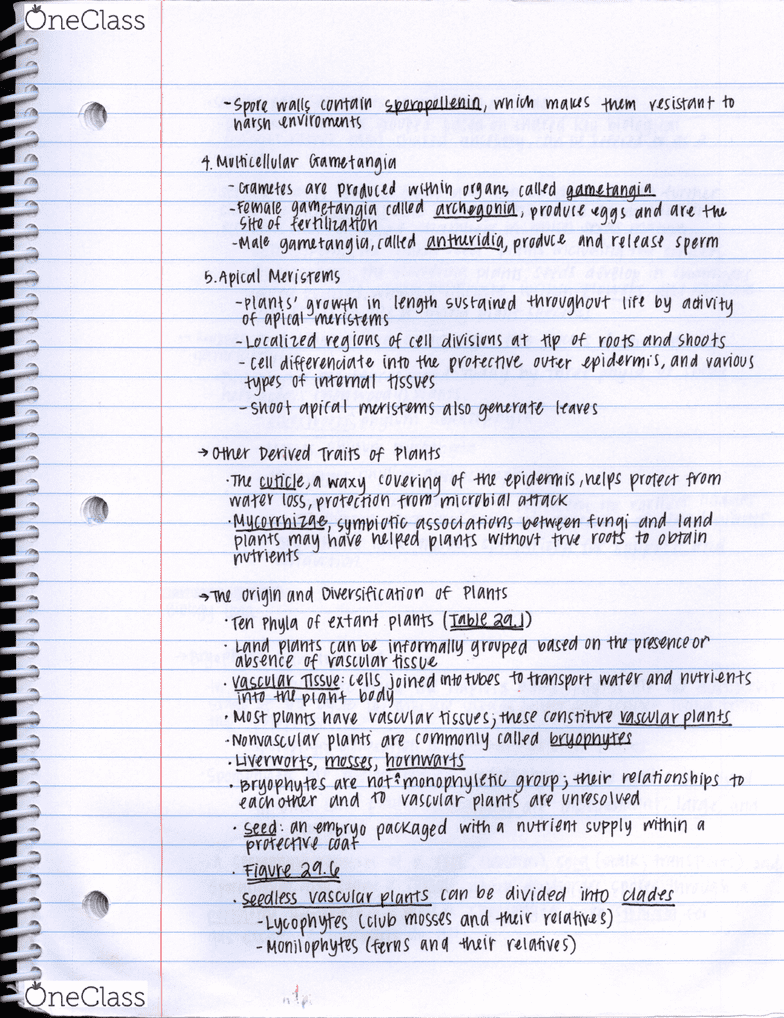 OneClass
-Spore walls contain sporopollenin, which makes them resistant to
harsh enviroments
4. Multicellular Gametangia
-Gametes are produced within organs called gametangia
-Female gametangia called archegonia, produce eggs and are the
site of fertilization
-Male gametangia, called antheridia, produce and release sperm
5. Apical Meristems
-Plants' growth in length sustained throughout life by activity
of apical meristems
-Localized regions of cell divisions at tip of roots and shoots
-Cell differenciate into the protective outer epidermis, and various
types of internal tissues
-Shoot apical meristems also generate leaves
→Other Derived Traits of Plants
·The cuticle, a waxy covering of the epidermis, helps protect from
water loss, protection from microbial attack
·Mycorrhizae, symbiotic associations between fungi and land
plants may have helped plants without true roots to obtain
nutrients
→The Origin and Diversification of Plants
·Ten Phyla of extant plants (Table 29.1)
·Land plants can be informally grouped based on the presence or
absence of vascular tissue
·Vascular Tissue: cells joined into tubes to transport water and nutrients
into the plant body
·Most plants have vascular tissues; these constitute vascular plants
·Nonvascular plants are commonly called bryophytes
·Liverworts, mosses, hornwarts
·Bryophytes are not a monophyletic group; their relationships to
each other and to vascular plants are unresolved
·Seed: an embryo packaged with a nutrient supply within a
protective coat
·Figure 29.6
·Seedless vascular plants can be divided into clades
-Lycophytes (club mosses and their relatives)
-Monilophytes (ferns and their relatives)
OneClass